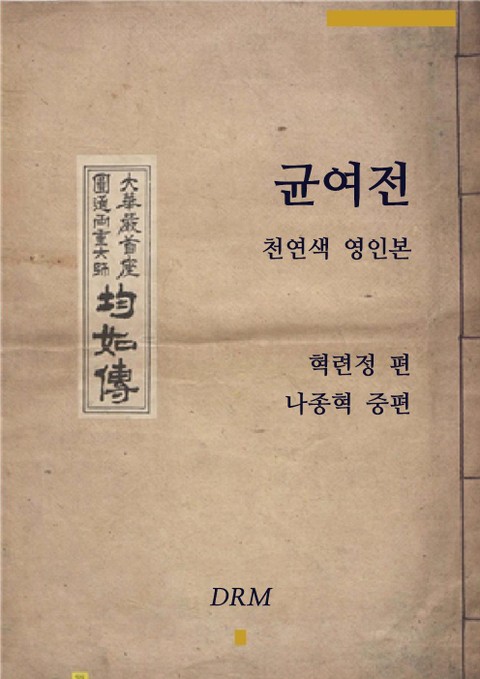 균여전
천연색 영인본
大華嚴首座
圓通兩重大師
均如傳
혁련정 편
나종혁 중편
DRM